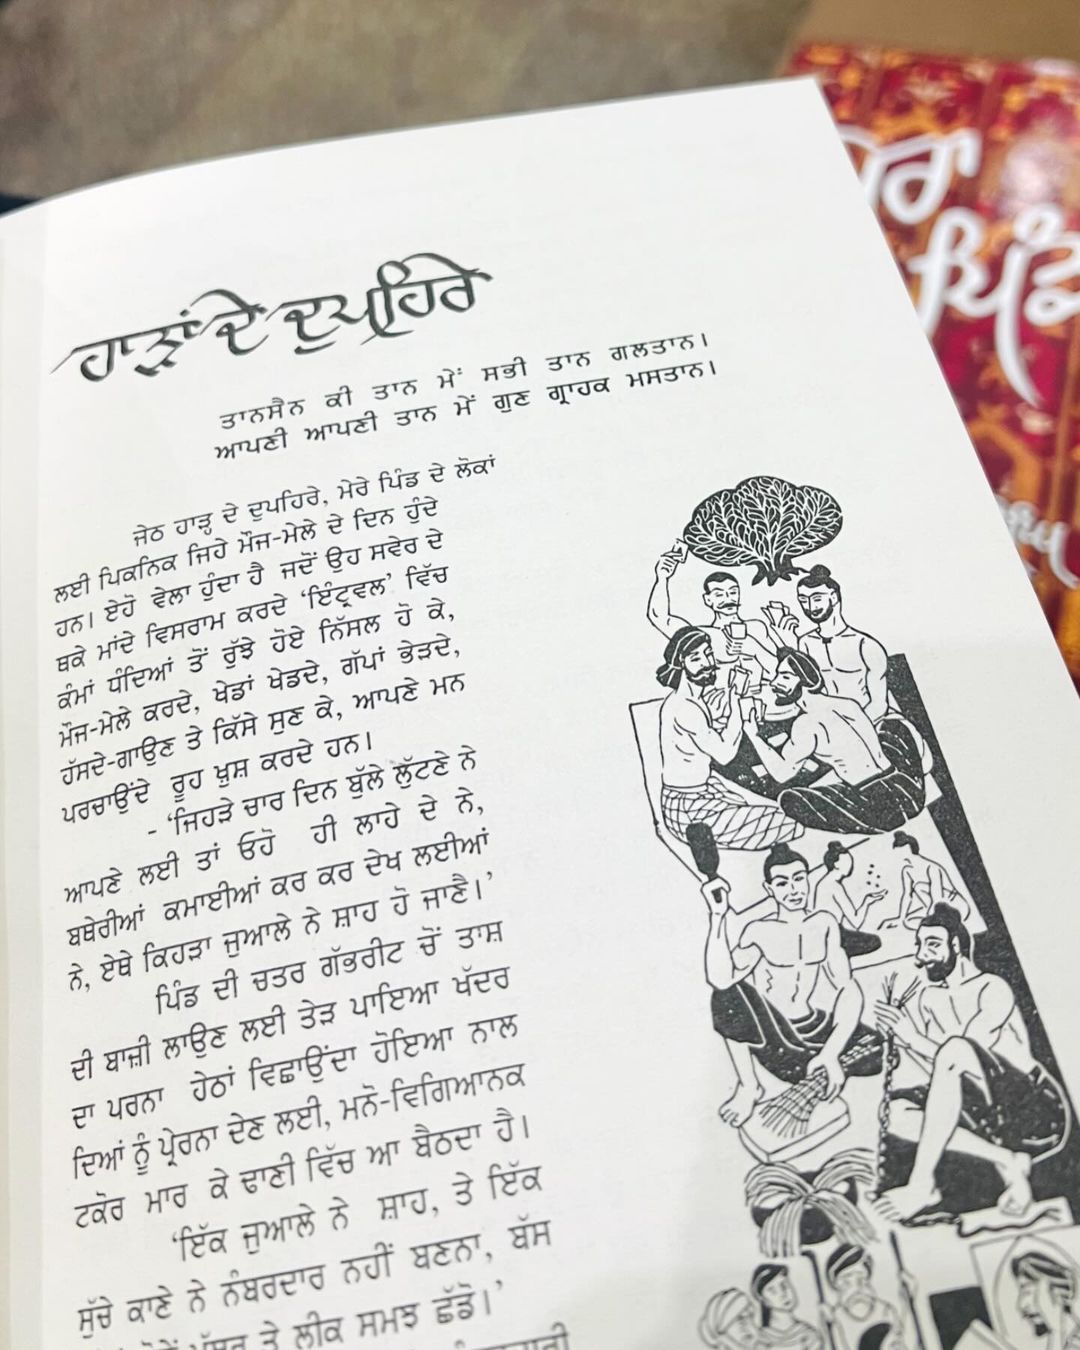 ਹਾੜਾਂ ਦੇ ਦੁਪਹਿਰੇ
ਤਾਨਸੈਨ ਕੀ ਤਾਨ ਮੇਂ ਸਭੀ ਤਾਨ ਗਲਤਾਨ।
ਆਪਣੀ ਆਪਣੀ ਤਾਨ ਮੇਂ ਗੁਣ ਗ੍ਰਾਹਕ ਮਸਤਾਨ।
ਜੇਠ ਹਾੜ੍ਹ ਦੇ ਦੁਪਹਿਰੇ, ਮੇਰੇ ਪਿੰਡ ਦੇ ਲੋਕਾਂ
ਲਈ ਪਿਕਨਿਕ ਜਿਹੇ ਮੌਜ-ਮੇਲੇ ਦੇ ਦਿਨ ਹੁੰਦੇ
ਹਨ। ਏਹੋ ਵੇਲਾ ਹੁੰਦਾ ਹੈ ਜਦੋਂ ਉਹ ਸਵੇਰ ਦੇ
ਥਕੇ ਮਾਂਦੇ ਵਿਸਰਾਮ ਕਰਦੇ ‘ਇੰਟ੍ਰਵਲ’ ਵਿੱਚ
ਕੰਮਾਂ ਧੰਦਿਆਂ ਤੋਂ ਰੁੱਝੇ ਹੋਏ ਨਿੱਸਲ ਹੋ ਕੇ,
ਮੌਜ-ਮੇਲੇ ਕਰਦੇ, ਖੇਡਾਂ ਖੇਡਦੇ, ਗੱਪਾਂ ਭੇੜਦੇ,
ਹੱਸਦੇ-ਗਾਉਣ ਤੇ ਕਿੱਸੇ ਸੁਣ ਕੇ, ਆਪਣੇ ਮਨ
ਪਰਚਾਉਂਦੇ ਰੂਹ ਖੁਸ਼ ਕਰਦੇ ਹਨ।
- ‘ਜਿਹੜੇ ਚਾਰ ਦਿਨ ਬੁੱਲੇ ਲੁੱਟਣੇ ਨੇ
ਆਪਣੇ ਲਈ ਤਾਂ ਓਹੋ ਹੀ ਲਾਹੇ ਦੇ ਨੇ,
ਬਥੇਰੀਆਂ ਕਮਾਈਆਂ ਕਰ ਕਰ ਦੇਖ ਲਈਆਂ
ਨੇ, ਏਥੇ ਕਿਹੜਾ ਜੁਆਲੇ ਨੇ ਸ਼ਾਹ ਹੋ ਜਾਣੈ।’
ਪਿੰਡ ਦੀ ਚਤਰ ਗੱਭਰੀਟ ਚੋਂ ਤਾਸ਼
ਦੀ ਬਾਜ਼ੀ ਲਾਉਣ ਲਈ ਤੇੜ ਪਾਇਆ ਖੱਦਰ
ਦਾ ਪਰਨਾ ਹੇਠਾਂ ਵਿਛਾਉਂਦਾ ਹੋਇਆ ਨਾਲ
ਦਿਆਂ ਨੂੰ ਪ੍ਰੇਰਨਾ ਦੇਣ ਲਈ, ਮਨੋ-ਵਿਗਿਆਨਕ
ਟਕੋਰ ਮਾਰ ਕੇ ਢਾਣੀ ਵਿੱਚ ਆ ਬੈਠਦਾ ਹੈ।
‘ਇੱਕ ਜੁਆਲੇ ਨੇ ਸ਼ਾਹ, ਤੇ ਇੱਕ
ਸੁੱਚੇ ਕਾਣੇ ਨੇ ਨੰਬਰਦਾਰ ਨਹੀਂ ਬਣਨਾ, ਬੱਸ
ਤੇ ਲੀਕ ਸਮਝ ਛੱਡੋ।’
ਪਿੰਡ